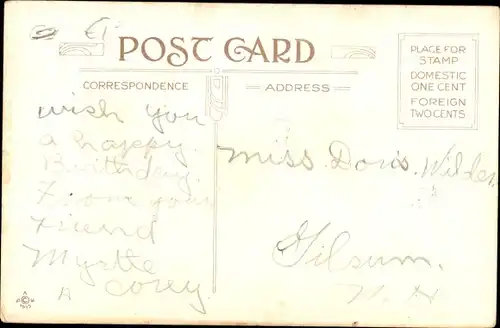 POST CARD
CORRESPONDENCE
ADDRESS
PLACE FOR
STAMP
DOMESTIC
ONE CENT
FOREIGN
TWO CENTS
wish you
a happy
Birthday.
From your
Friend
Myrtle
Corey
Miss Doris Wilder
Gilsum.
N. H